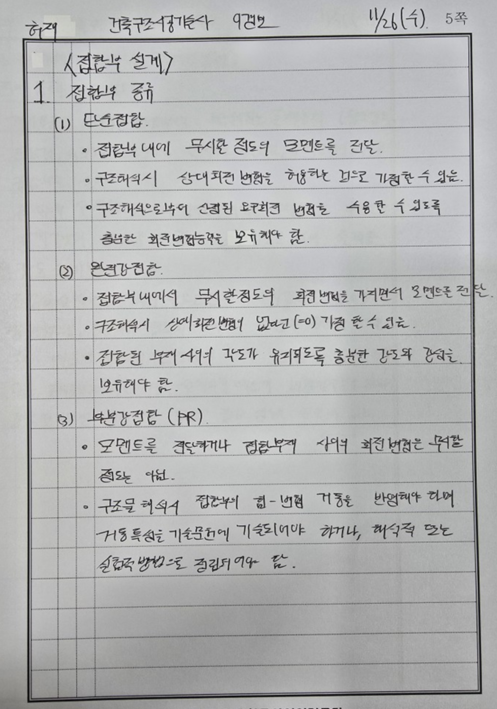 허재 건축구조기술사 9경보 11/26(수) 5쪽
<접합부 설계>
1. 접합부 종류
(1) 단순접합
• 접합부 내에 무시할 정도의 모멘트를 전달
• 구조해석시 상대회전변형을 허용하는 것으로 가정할 수 있음.
• 구조해석으로부터 산정된 요구회전 변형을 수용할 수 있도록
충분한 회전변형능력을 보유해야 함.
(2) 완전강접합
• 접합부내에서 무시할정도의 회전변형을 가지면서 모멘트를 전달.
• 구조해석시 상대회전변형이 없다고(=0) 가정할 수 있음.
• 접합된 부재 사이의 각도가 유지되도록 충분한 강도와 강성을
보유해야 함.
(3) 부분강접합 (PR)
• 모멘트를 전달하거나 접합부재 사이의 회전변형은 무시할
정도는 아님.
• 구조물 해석시 접합부의 힘-변형 거동을 반영해야 하며
거동특성을 기술문헌에 기술되어야 하거나, 해석적 또는
실험적방법으로 정립되어야 함.